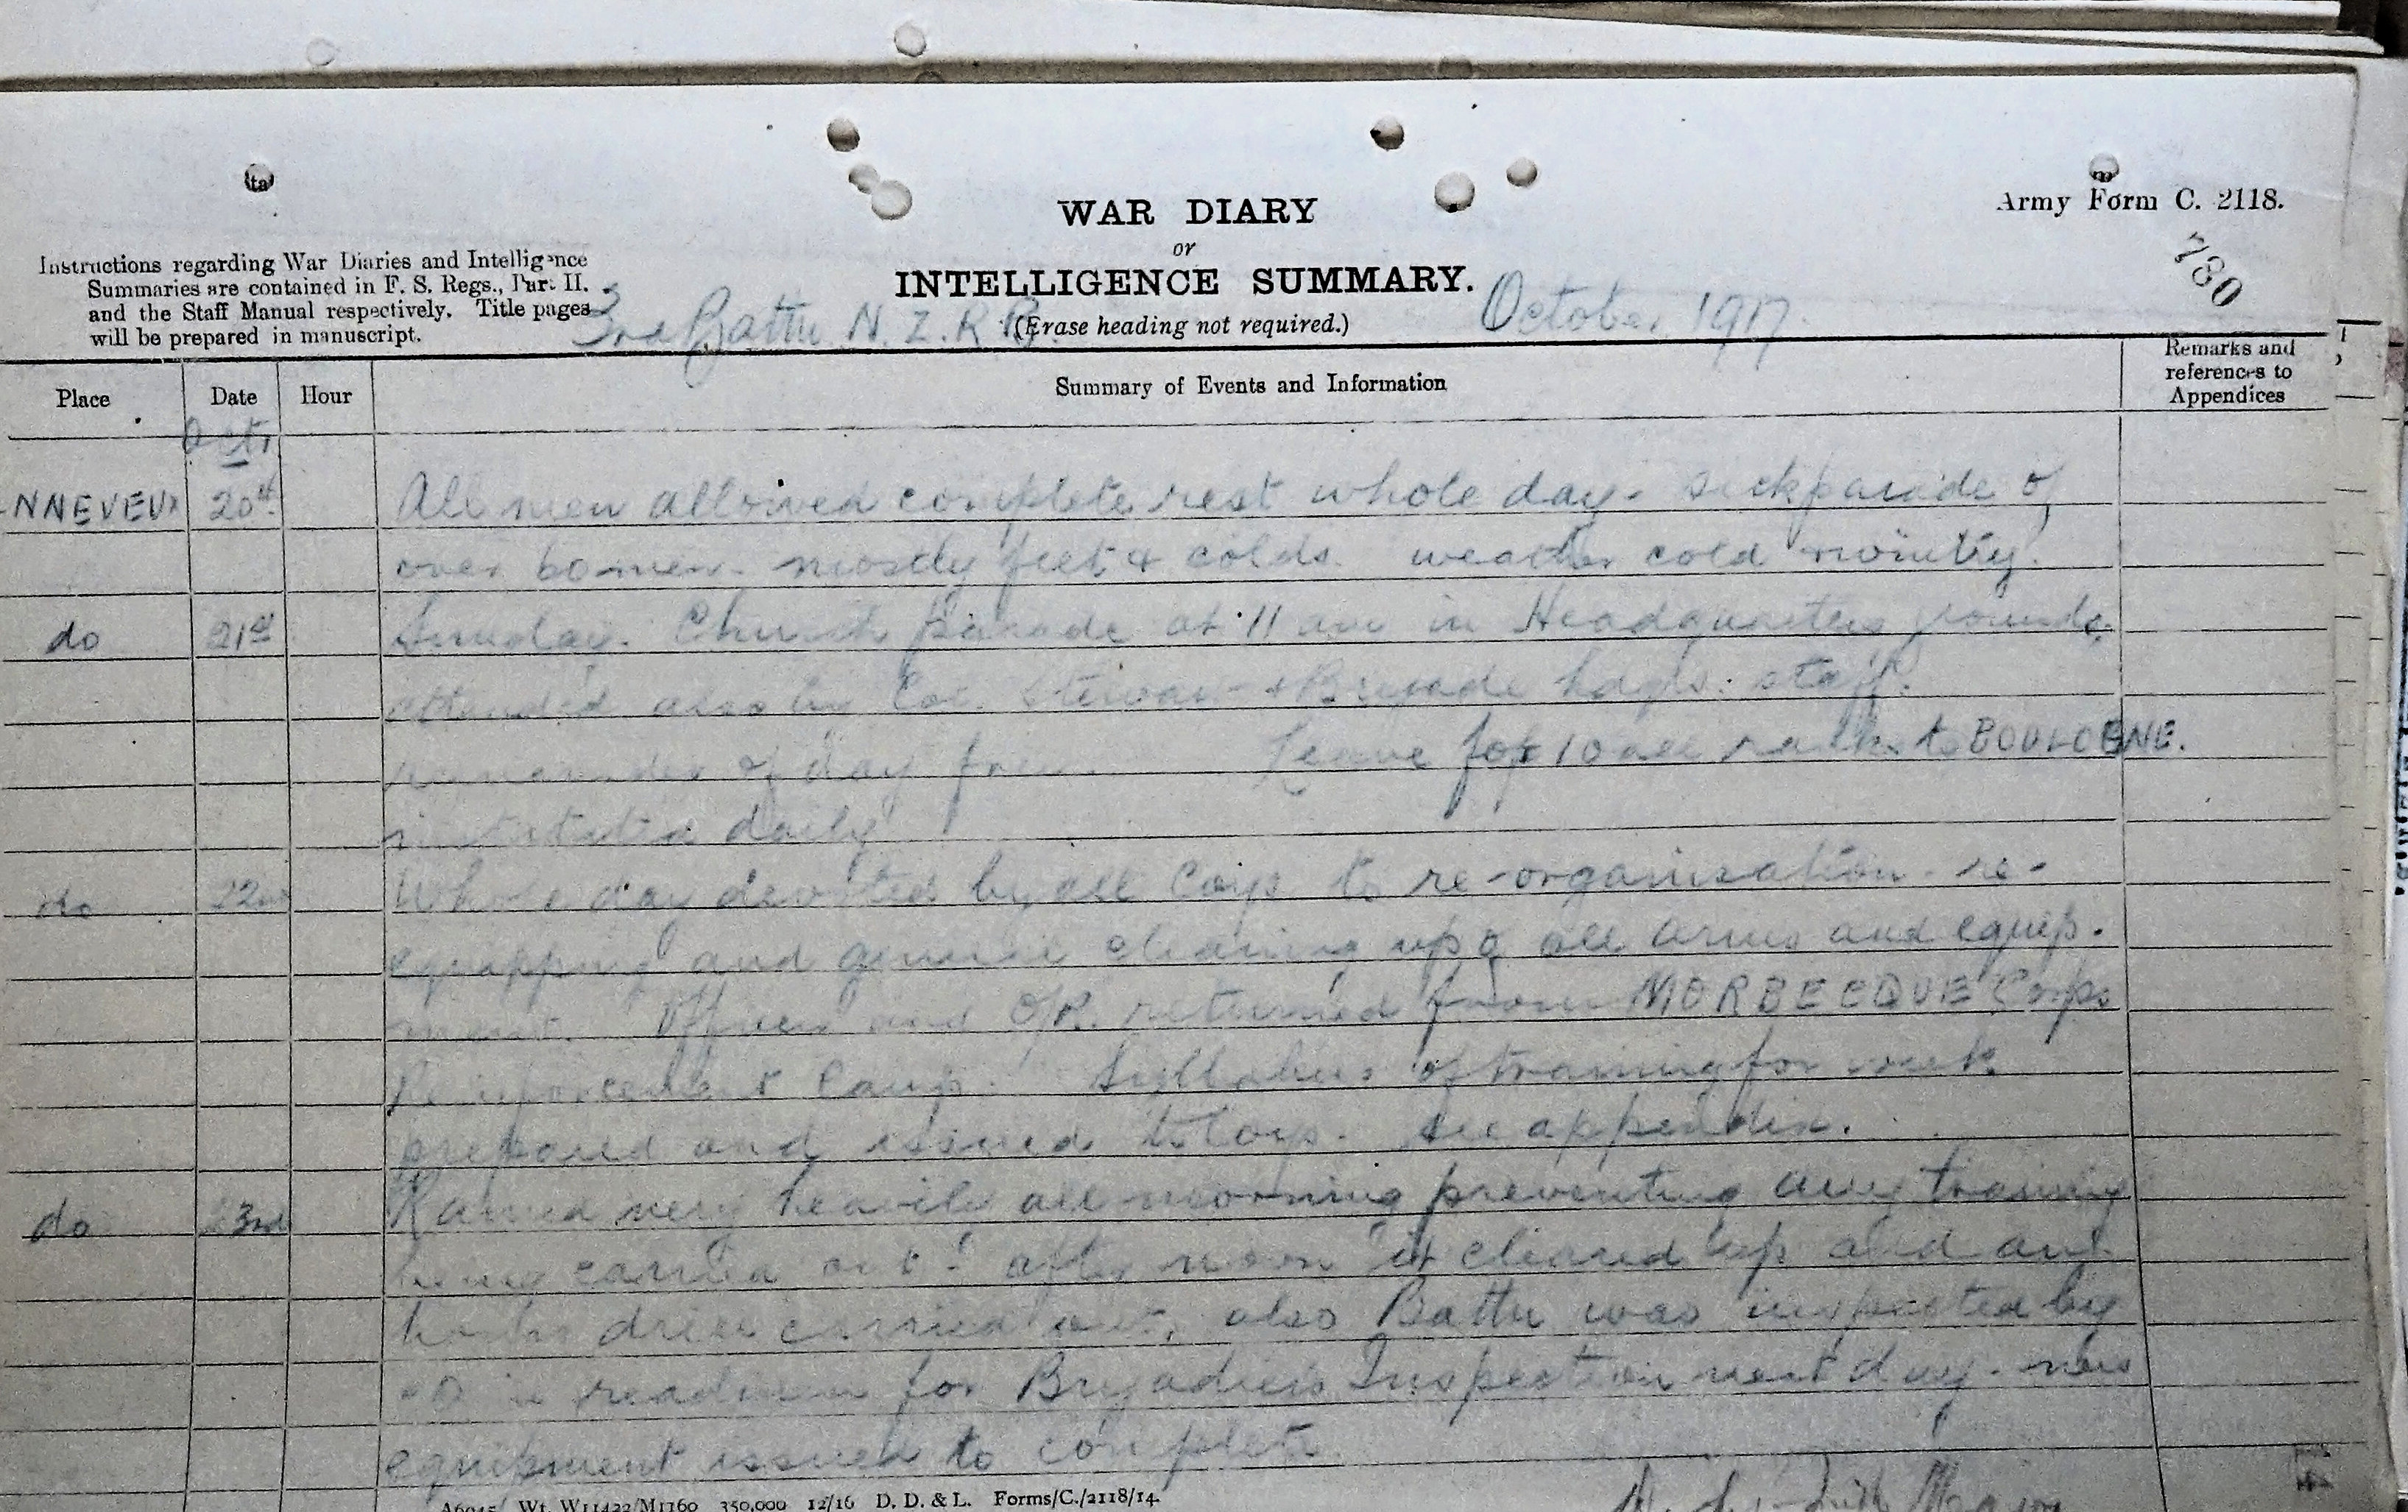 WAR DIARY
or
INTELLIGENCE SUMMARY.
(Erase heading not required.)
Army Form C. 2118.
730
Instructions regarding War Diaries and Intelligence
Summaries are contained in F. S. Regs., Part II.
and the Staff Manual respectively. Title pages
will be prepared in manuscript.
3rd Battn N.Z.R.B. October 1917.
Place Date Hour Summary of Events and Information Remarks and references to Appendices
Oct.
NNEVEUX 20th All men allowed complete rest whole day - sick parade of
over 60 men - mostly feet & colds. weather cold
do 21st Sunday. Church Parade at 11 am in Headquarters grounds
attended also by Col. Stewart & Brigade hdqrs. staff.
remainder of day free. Leave for 10 all ranks to BOULOGNE.
instituted daily
do 22nd Whole day devoted by all Coys to re-organisation - re-
equipping and general cleaning up of all arms and equip-
ment. Officers and O/R. returned from MORBECQUE Corps
Reinforcement Camp. Syllabus of training for week
prepared and issued to Coys. See appendix.
do 23rd Rained very heavily all morning preventing any training
being carried out - after noon it cleared up and an
hours drill carried out, also Battn was inspected by
CO in readiness for Brigadiers Inspection next day - new
equipment issued to complete
A6945 Wt. W11422/M1160 350,000 12/16 D. D. & L. Forms/C./2118/14.